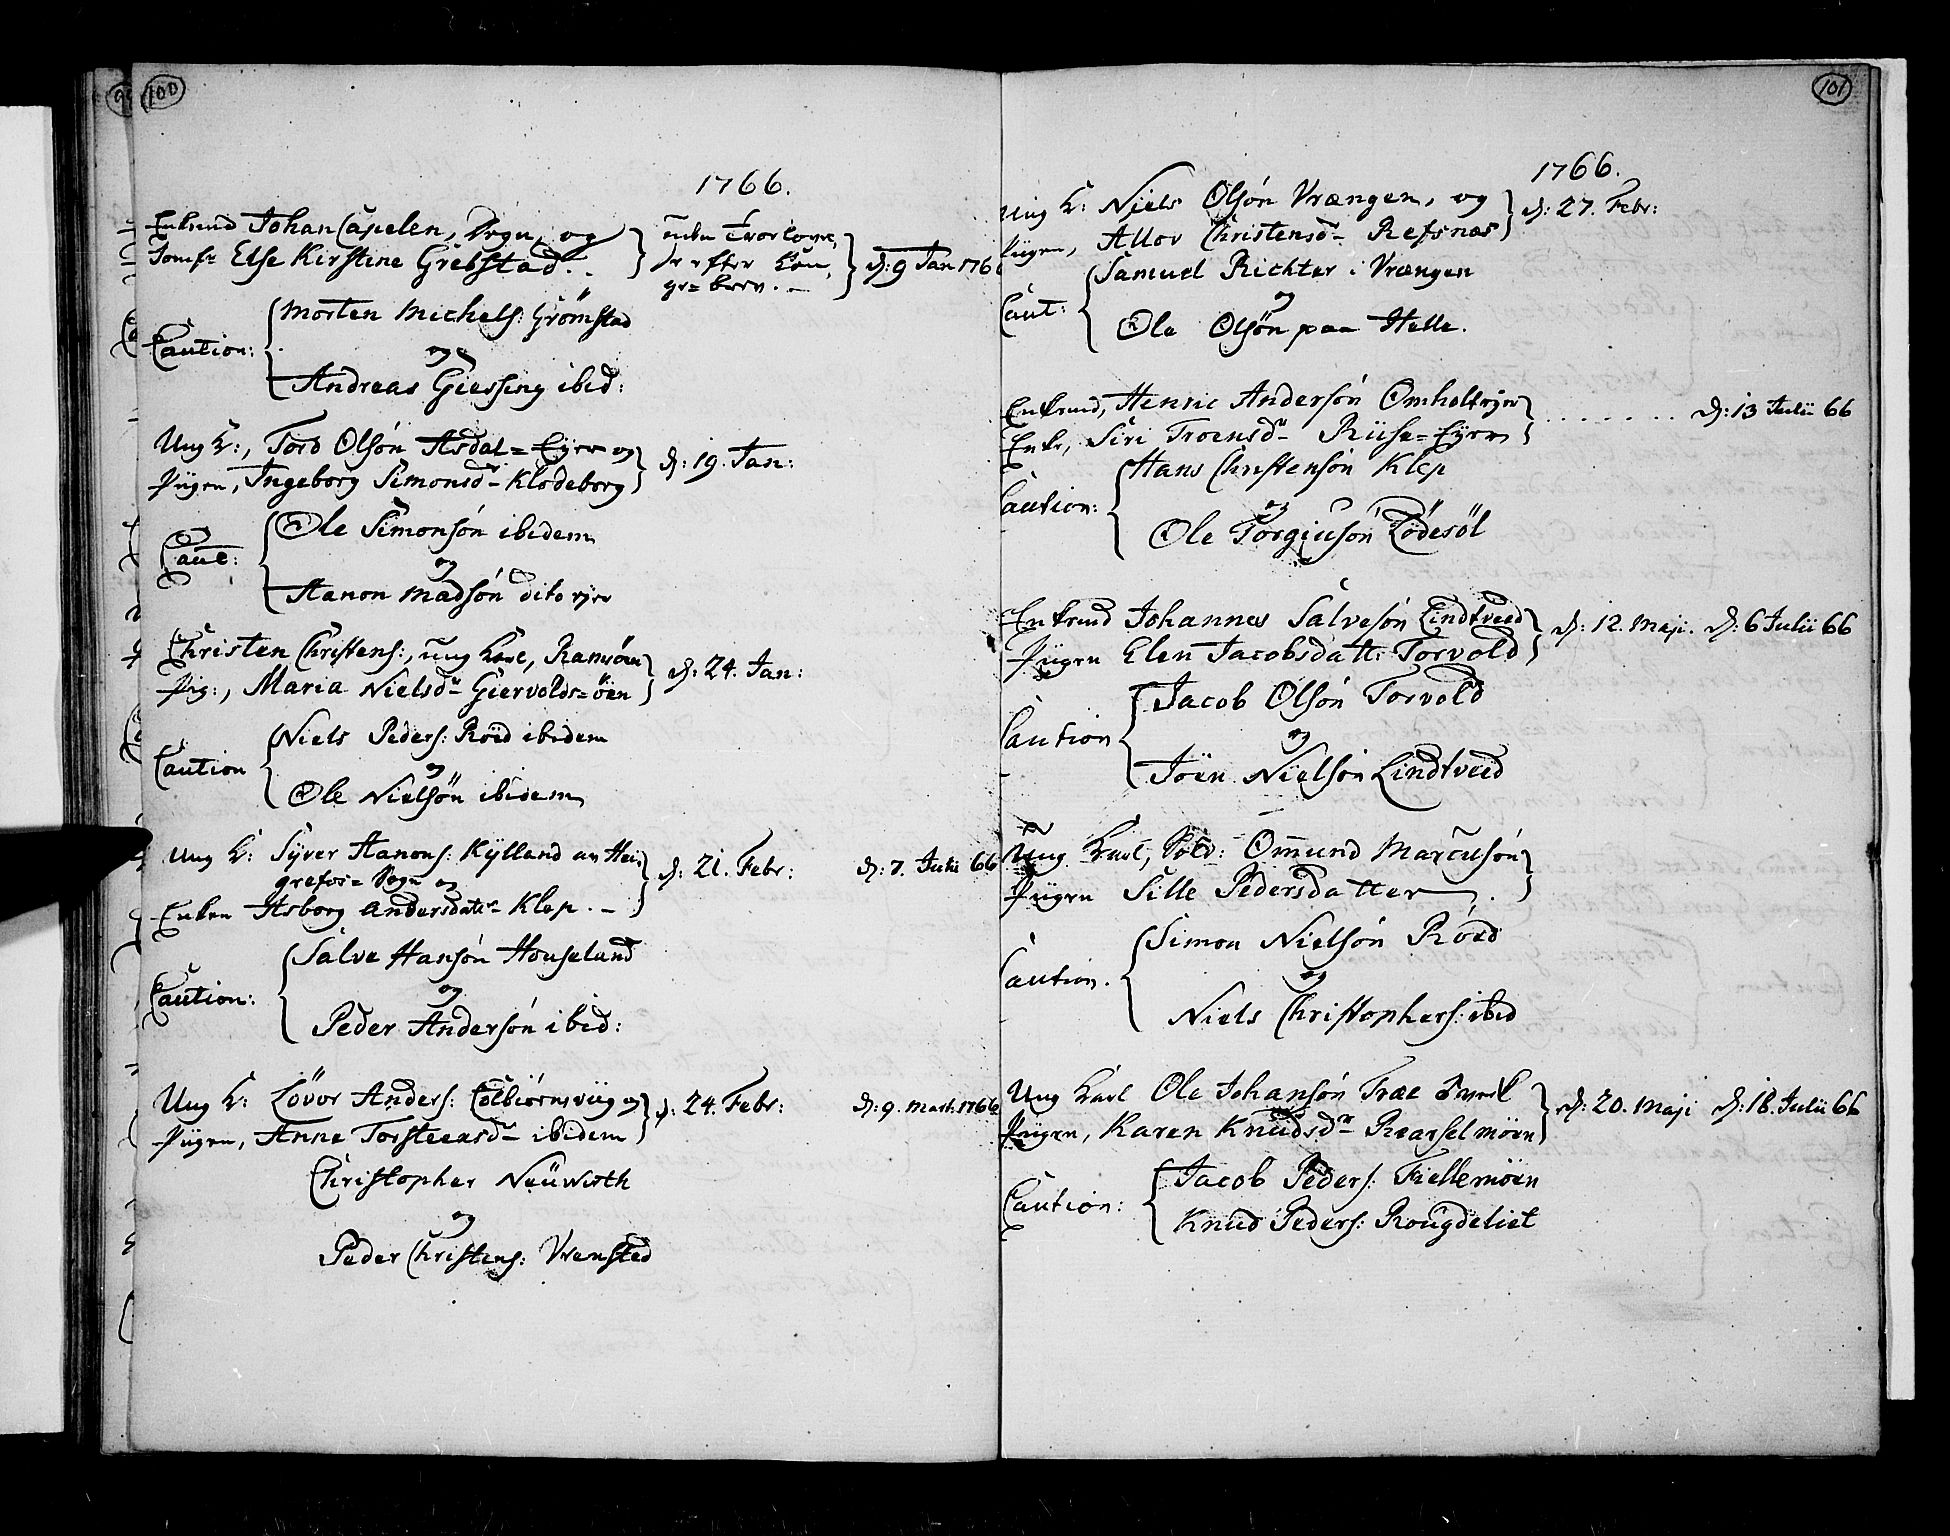 100
1766.
Enkemd Johan Capelen, Degn, og
Jomfr Else Kirstine Grebstad.
uden Trorlovne,
de efter Kon,
gr= berv. -
d: 9 Jan 1766
Caution:
Morten Michels: Grömstad
og
Andreas Giessing ibid:
Ung K:, Tord Olsön Asdal=Eyer og
Pigen, Ingeborg Simonsdr Klodeborg
d: 19. Jan:
Caut:
Ole Simonsön ibidem
og
Aanon Madsön dito eyer
Christen Christens:, ung Karl, Ramsöen
Pig:, Maria Nielsdr Giervolds=öen
d: 24. Jan:
Caution
Niels Peders: Röed ibidem
og
Ole Nielsön ibidem
Ung K: Syver Aanons: Kÿlland av Hei,
grefos= Sogn og
Enken Asborg Andersdatr Klep. -
d: 21. Febr:
d: 7. Julii 66
Caution:
Salve Hansön Houseland
og
Peder Andersön ibid:
Ung K: Lövor Anders: Colbiörnsviig og
Pigen, Anne Torsteensdr ibidem
d: 24. Febr:
d: 9. Mart: 1766
Christopher Neüwirth
og
Peder Christens: Vrensted
101
1766.
Ung K: Niels Olsön Vrængen, og
Pigen, Allov Christensdr Refsnæs
d: 27. Febr:
Caut:
Samuel Richter i Vrængen
og
Ole Olsön paa Helle.
Enkemd, Henric Andersön Omholteyer
Enke, Siri Troensdr Riise=Eyer
d: 13 Julii 66
Caution:
Hans Christensön Klep
og
Ole Torgiusön Lödesöl
Enkemd Johannes Salvesön Lindtveed
Pigen Elen Jacobsdatt: Torvold
d: 12. Maji. d: 6 Julii 66
Caution
Jacob Olsön Torvold
og
Jöen Nielsön Lindtveed
Ung Karl, Sold: Omund Marcusön
Pigen Sille Pedersdatter.
Caution.
Simon Nielsön Röed
og
Niels Christophers: ibid
Ung Karl Ole Johansön Træe
Pigen, Karen Knudsdr Rearselmöen
d: 20. Maji d: 18. Julii 66
Caution:
Jacob Peders: Fiellemöen
Knud Peders: Rougdeliet